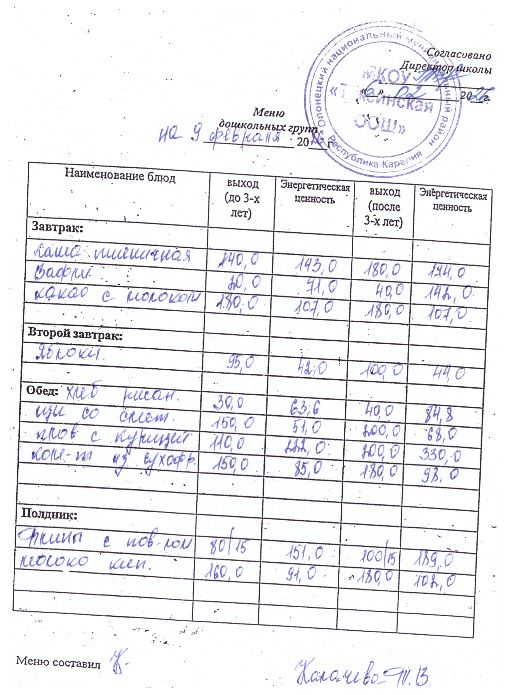 Согласовано
Директор школы
МКОУ
«6» 02 2026 г.
«Туксинская
СОШ»
Олонецкий национальный муниципальный район
Республика Карелия
Меню
дошкольных групп
на 9 февраля 20 г.
Наименование блюд выход (до 3-х лет) Энергетическая ценность выход (после 3-х лет) Энергетическая ценность
Завтрак:
каша пшеничная 140,0 143,0 180,0 174,0
Вафли 20,0 71,0 40,0 142,0
какао с молоком 180,0 107,0 180,0 107,0
Второй завтрак:
Яблоки. 95,0 42,0 100,0 44,0
Обед: хлеб ржан. 30,0 63,6 40,0 84,8
щи со смет. 150,0 51,0 200,0 68,0
плов с курицей 110,0 222,0 200,0 330,0
комп-т из сухофр. 150,0 85,0 180,0 98,0
Полдник:
блины с пов-лом 80/15 151,0 100/15 189,0
молоко кип. 160,0 91,0 180,0 102,0
Меню составил Калачева Т.В